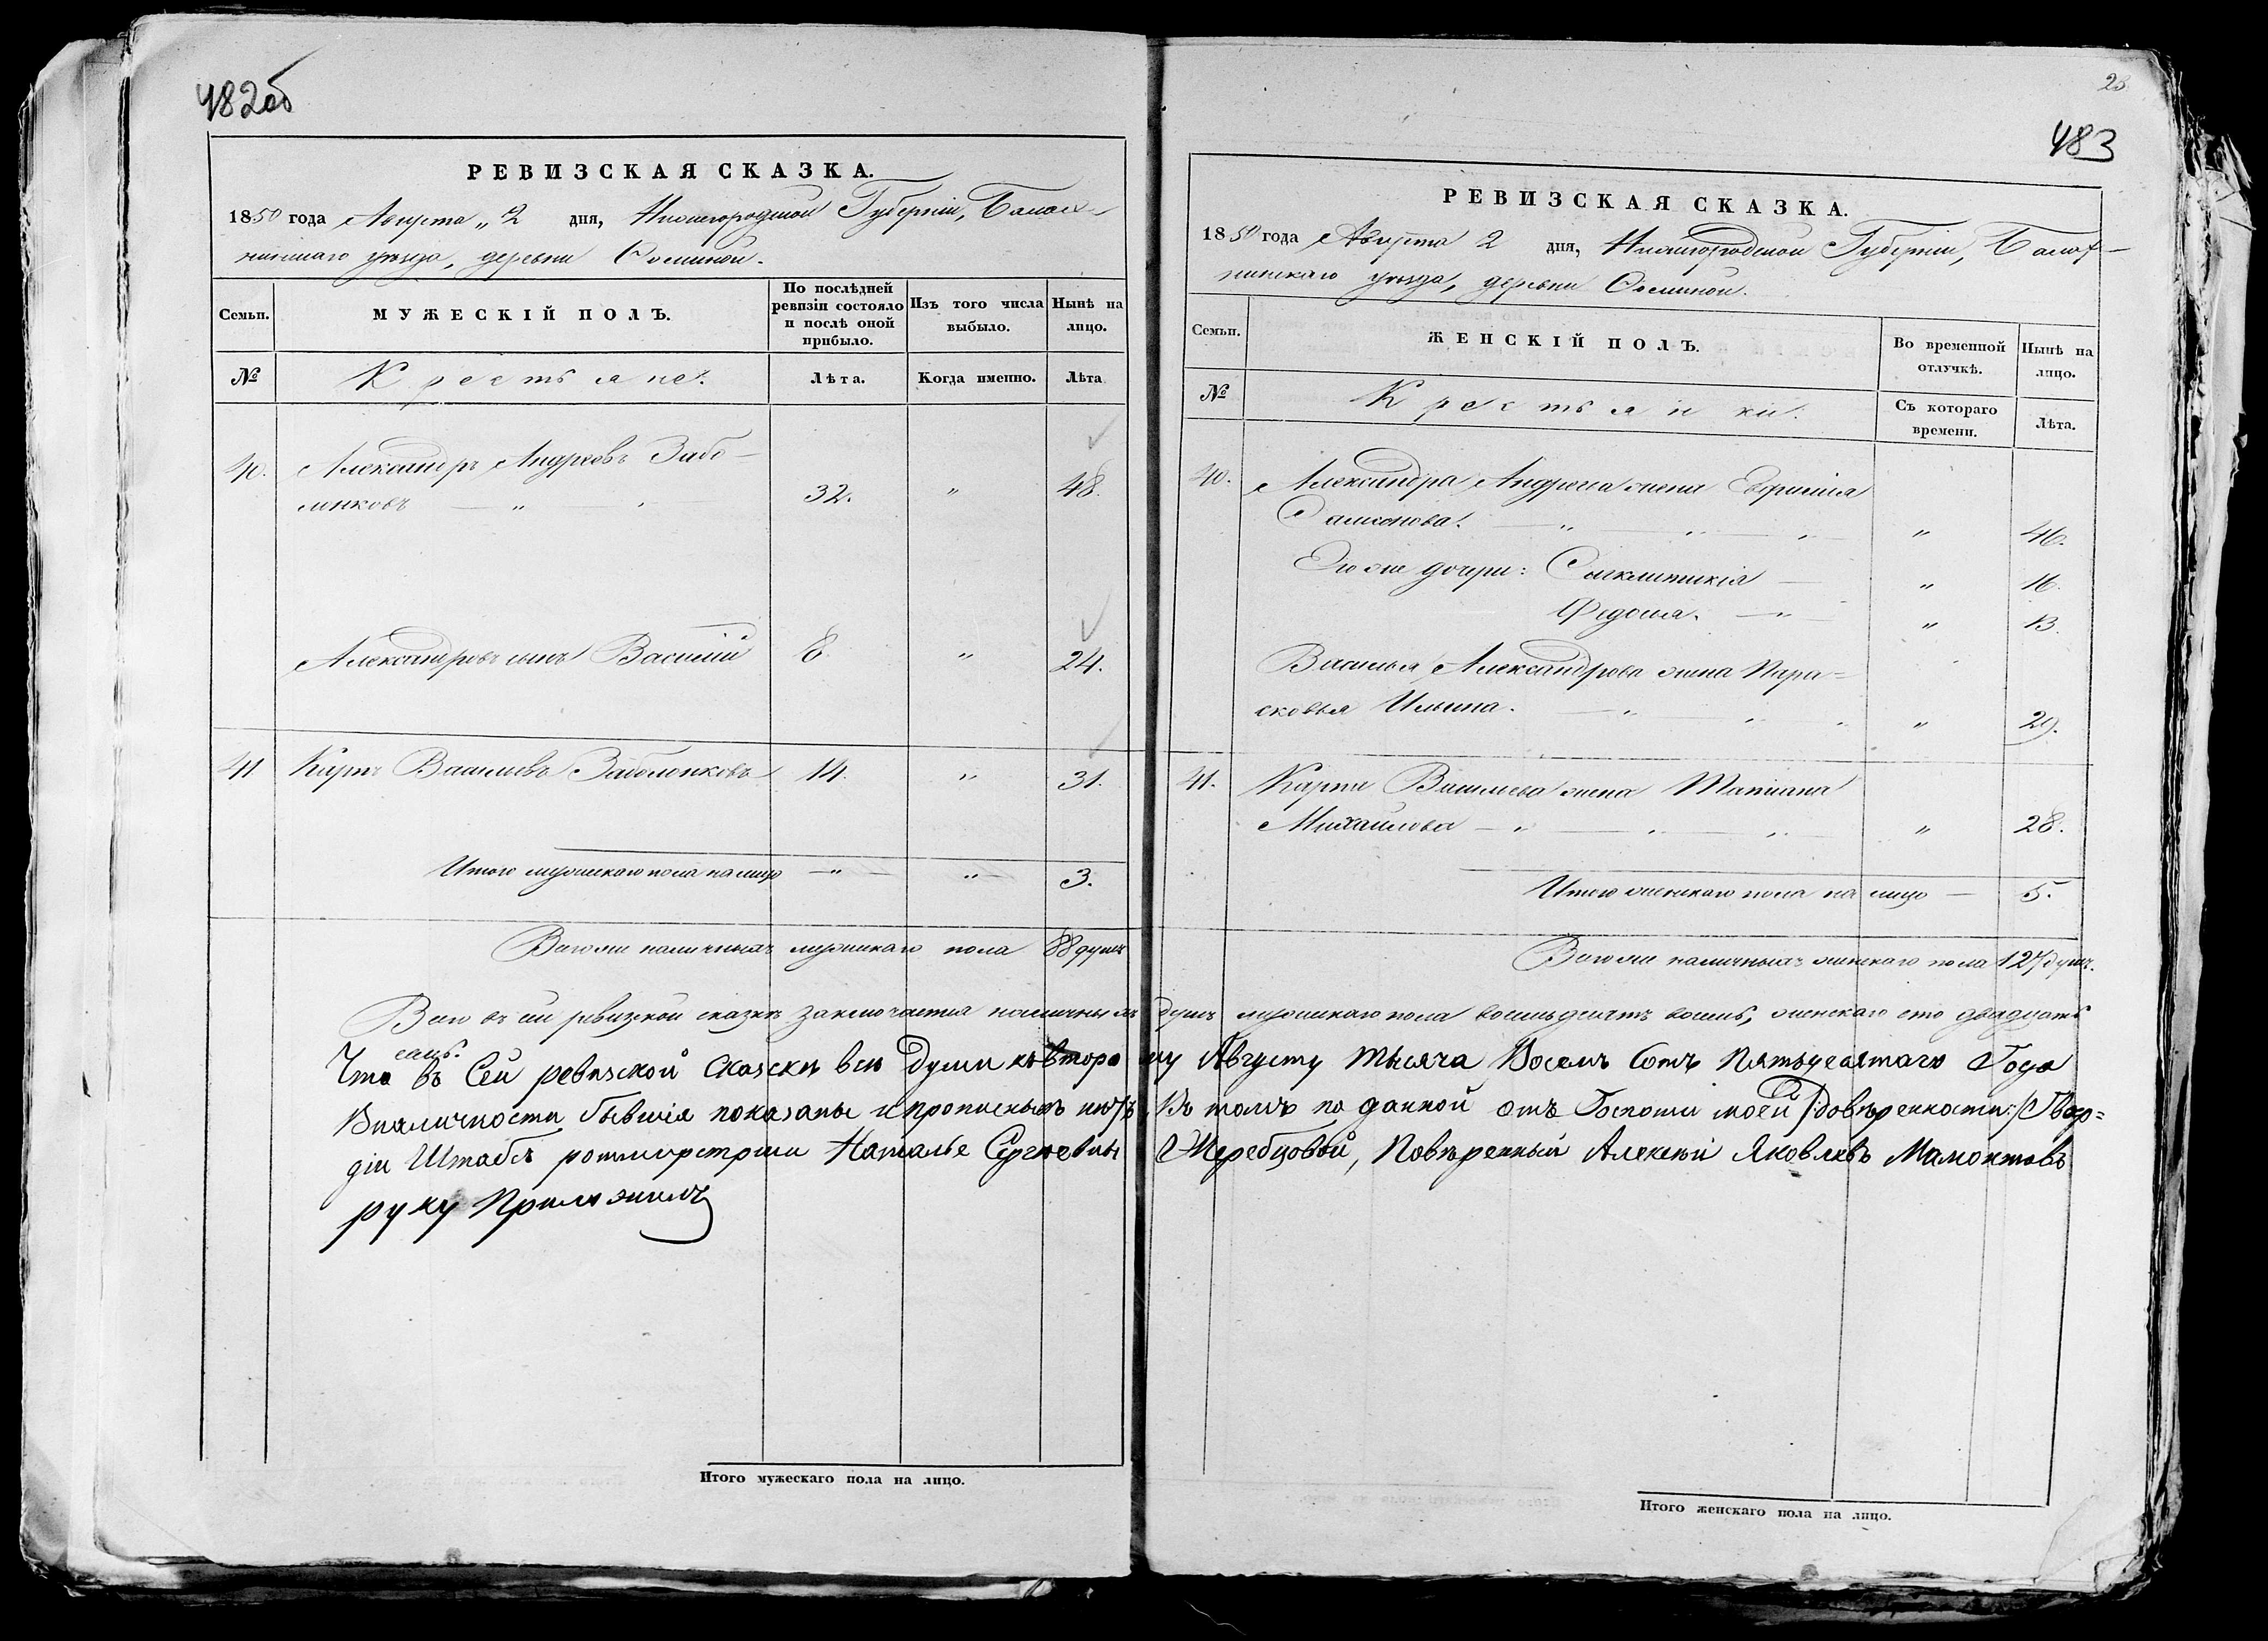 482об
РЕВИЗСКАЯ СКАЗКА.
1850 года Августа „2 дня, Нижегородской Губерніи, Балах-
нинскаго уѣзда, деревни Ѳоминой.
Семьи.
МУЖЕСКІЙ ПОЛЪ.
По послѣдней
ревизіи состояло
и послѣ оной
прибыло.
Изъ того числа
выбыло.
Нынѣ на
лицо.
№
Крестьяне.
Лѣта.
Когда именно.
Лѣта
40. Александръ Андреевъ Забо-
лонковъ — „ — 32. „ 48.
Александровъ сынъ Василій 8. „ 24.
41 Карпъ Васильевъ Заболонковъ 14. „ 31.
Итого мужескаго пола на лицо — „ — „ — 3.
Всего же наличныхъ мужескаго пола 88 душъ
23
483
РЕВИЗСКАЯ СКАЗКА.
1850 года Августа 2 дня, Нижегородской Губерніи, Балах-
нинскаго уѣзда, деревни Ѳоминой.
Семьи.
ЖЕНСКІЙ ПОЛЪ.
Во временной
отлучкѣ.
Нынѣ на
лицо.
№
Крестьянки.
Съ котораго
времени.
Лѣта.
40. Александра Андреева жена Евфимія
Самсонова. — „ — „ — „ — „ 46.
Его же дочери: Сигклитикія — „ 16.
Федосья. — „ — „ 13.
Василья Александрова жена Пара-
сковья Ильина. — „ 29.
41. Карпа Васильева жена Матиана
Михайлова — „ — „ 28.
Итого женскаго пола на лицо — 5.
Всего же наличныхъ женскаго пола 127 душъ.
Всего въ сей ревизской сказкѣ заключается наличныхъ душъ мужескаго пола восемьдесятъ восемь, женскаго сто двадцать
семь.
Что въ Сей ревизской сказски всѣ Души ковторому Августу тысяча Восемъ Сотъ Пятьдесятаго Года
Вналичности бывшія показаны ипрописныхъ нѣтъ, Въ томъ по данной отъ Госпожи моей /:довѣренности:/ Гвар=
діи Штабсъ ротмистрши Натальѣ Сергѣевны Жеребцовой, Повѣренный Алексѣй Яковлевъ Мамонтовъ
руку Приложилъ
Итого мужескаго пола на лицо.
Итого женскаго пола на лицо.